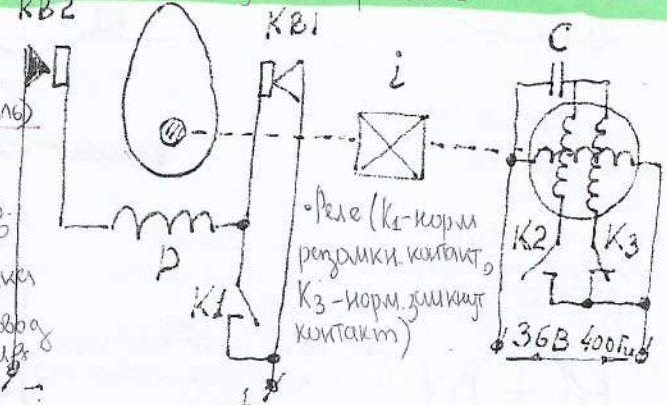 КВ2
КВ1
i
C
• Реле (К1-норм
разомкн. контакт,
К3-норм. замкнут
контакт)
К1
К2
К3
36В 400Гц